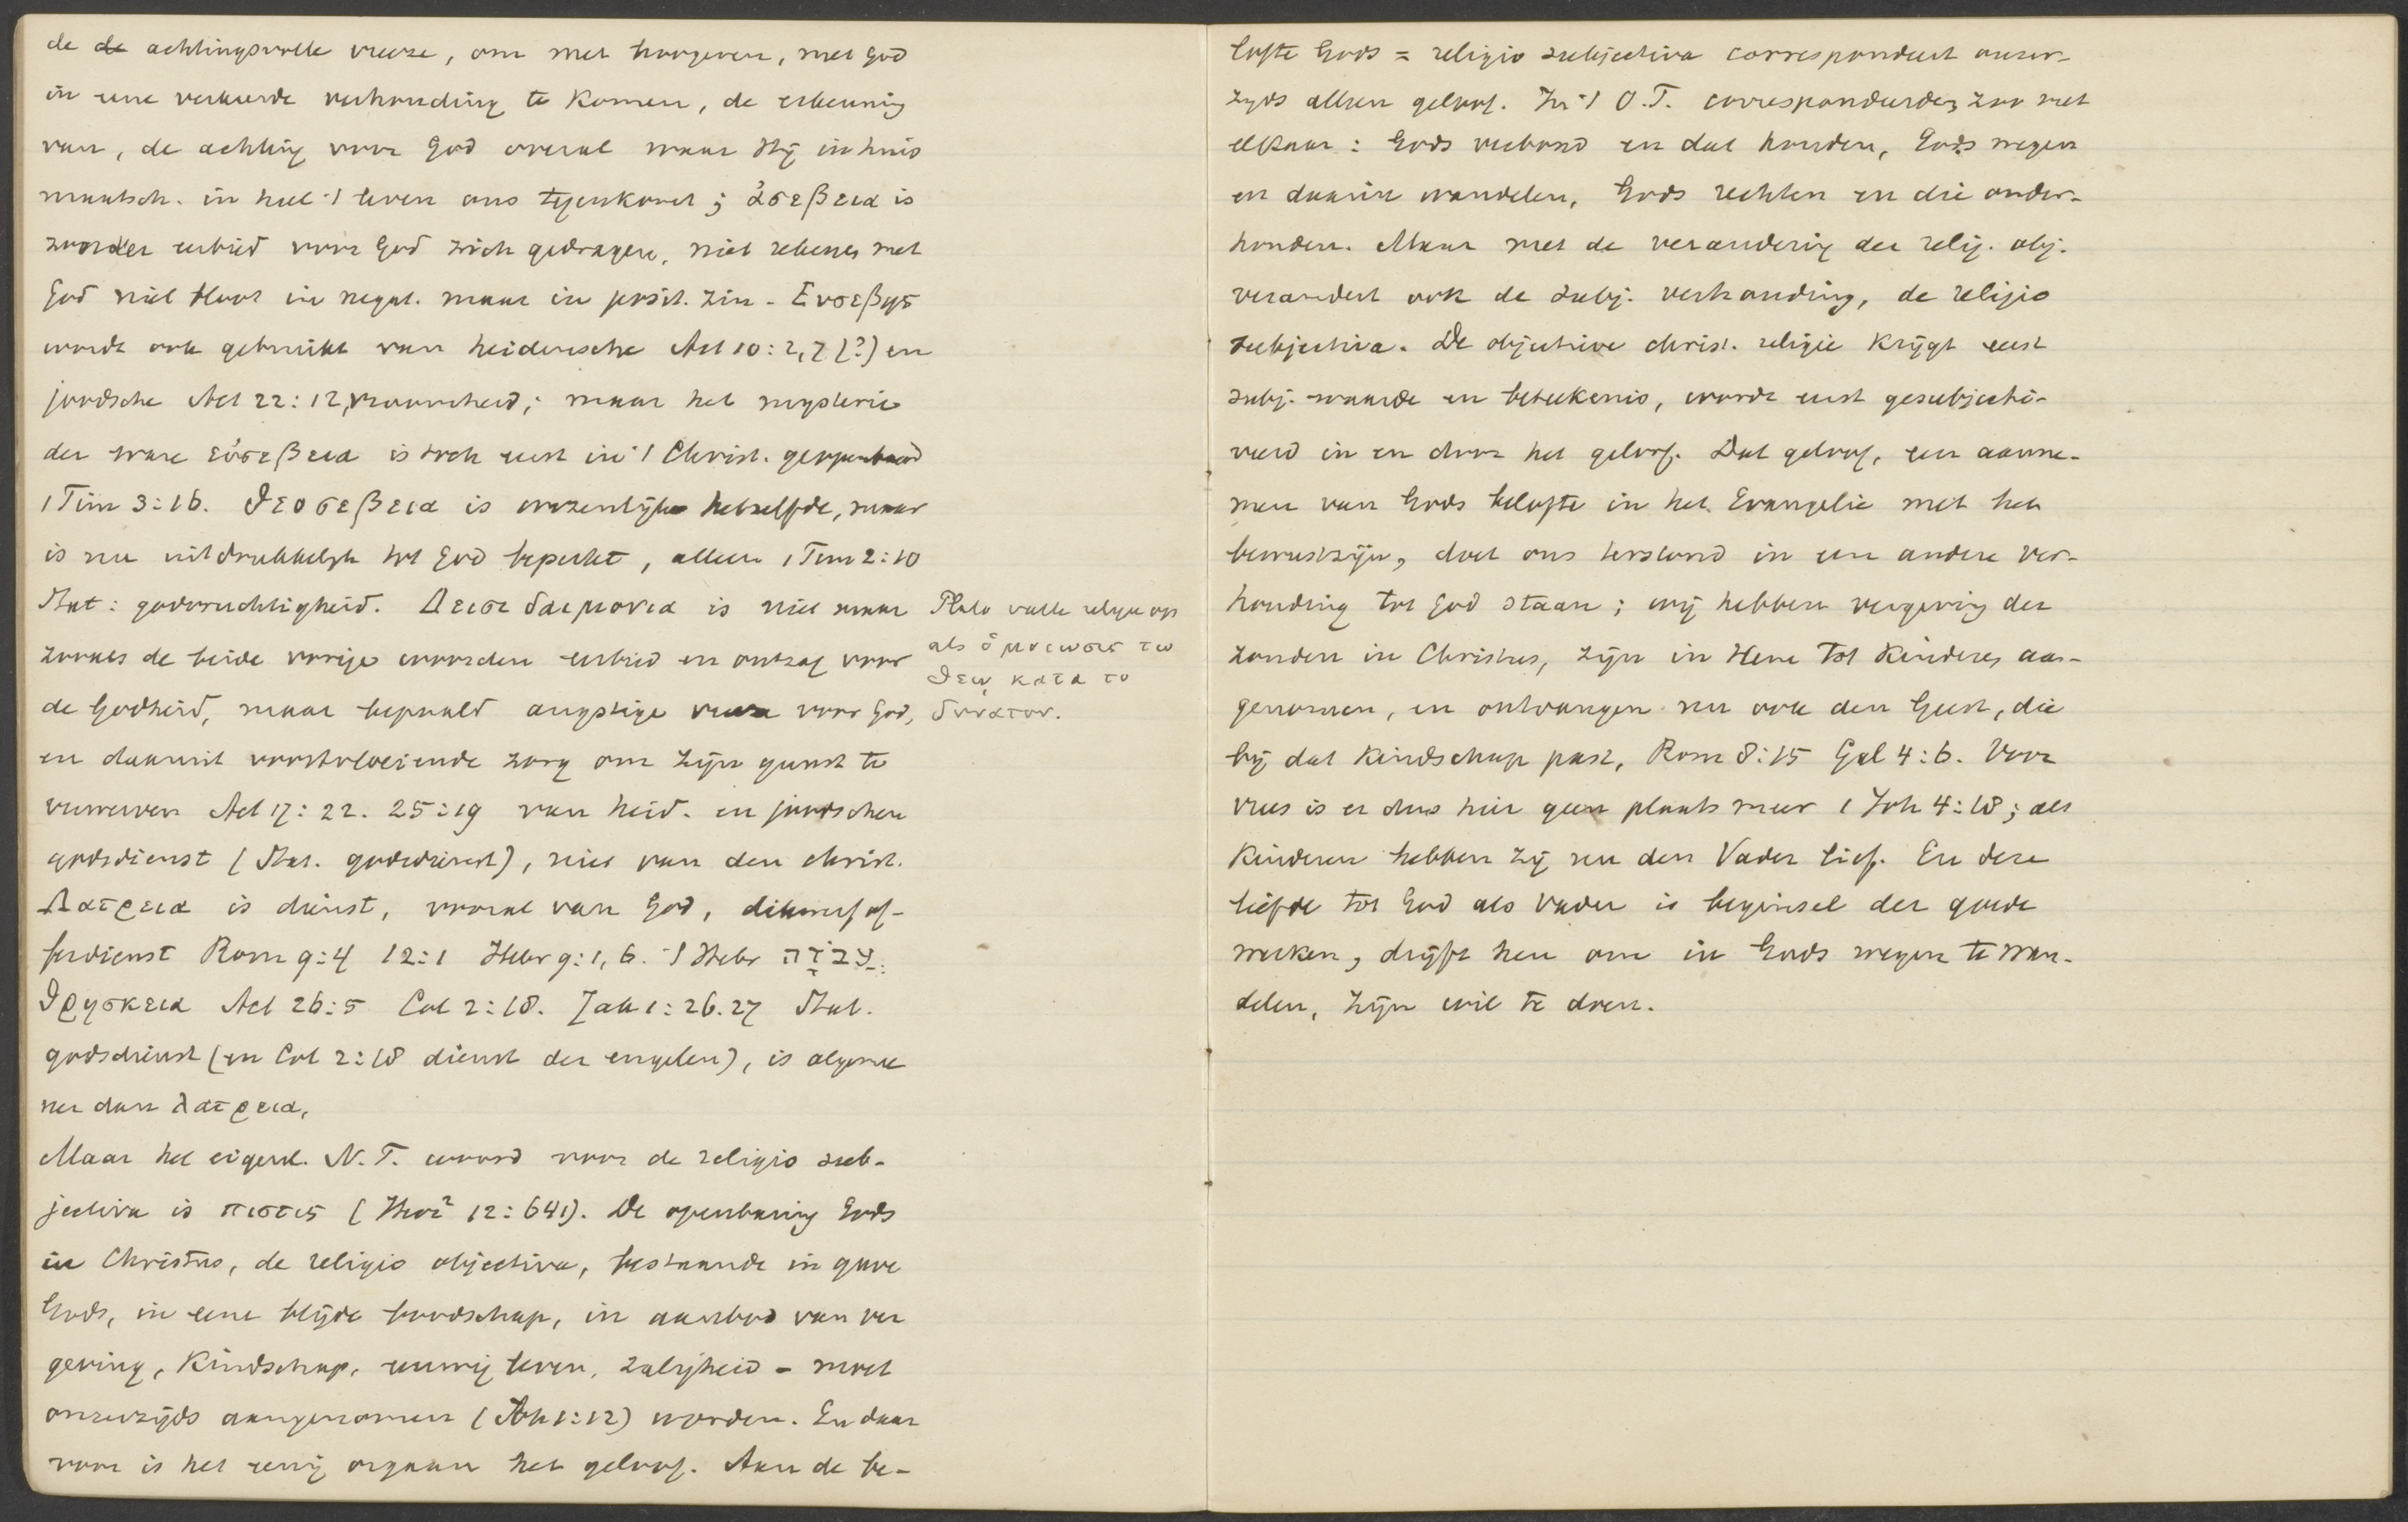 de de achtingsvolle vreeze, om met hoogeren, met God
in eene verkeerde verhouding te komen, de erkenning
van, de achting voor God overal waar Hij in huis
maatsch. in heel 't leven ons tegenkomt; ἀσεβεια is
zonder eerbied voor God zich gedragen, niet rekenen met
God niet bloot in negat. maar in posit. zin - Ευσεβης
wordt ook gebruikt van heidensche Act 10:2,7 (?) en
joodsche Act 22:12, vroomheid; maar het mysterie
der ware εὐσεβεια is toch eerst in 't Christ. geopenbaard
1 Tim 3:16. Θεοσεβεια is wezenlijk hetzelfde, maar
is nu uitdrukkelijk tot God beperkt, alleen 1 Tim 2:10
Stat: godvruchtigheid. Δεισιδαιμονια is niet maar
zooals de beide vorige woorden eerbied en ontzag voor
de Godheid, maar bepaald angstige vrees voor God,
en daaruit voortvloeiende zorg om zijn gunst te
verwerven Act 17:22. 25:19 van heid. en joodschen
godsdienst (Stat. godsdienst), niet van den christ.
Λατρεια is dienst, vooral van God, dikwerf of-
ferdienst Rom 9:4 12:1 Hebr 9:1, 6. 't Hebr עֲבֹדָה
Θρησκεια Act 26:5 Col 2:18. Jak 1:26.27 Stat.
godsdienst (en Col 2:18 dienst der engelen), is algemee
ner dan λατρεια,
Maar het eigenl. N.T. woord voor de religio sub-
jectiva is πιστις (Herz² 12:641). De openbaring Gods
in Christus, de religio objectiva, bestaande in gave
Gods, in eene blijde boodschap, in aanbod van ver
geving, kindschap, eeuwig leven, zaligheid - moet
onzerzijds aangenomen (Joh 1:12) worden. En daar
voor is het eenig orgaan het geloof. Aan de be-
Plato vatte religie op
als ὁμοιωσις τῳ
θεῳ κατα το
δυνατον.
lofte Gods = religio subjectiva correspondeert onzer-
zijds alleen geloof. In 't O.T. correspondeerden zoo met
elkaar: Gods verbond en dat houden, Gods wegen
en daarin wandelen, Gods rechten en die onder-
houden. Maar met de verandering der relig. obj.
verandert ook de subj. verhouding, de religio
subjectiva. De objectieve christ. religie krijgt eerst
subj. waarde en beteekenis, wordt eerst gesubjecti-
veerd in en door het geloof. Dat geloof, een aanne-
men van Gods belofte in het Evangelie met het
bewustzijn, doet ons terstond in een andere ver-
houding tot God staan; wij hebben vergeving der
zonden in Christus, zijn in Hem tot kinderen aan-
genomen, en ontvangen nu ook den Geest, die
bij dat kindschap past, Rom 8:15 Gal 4:6. Voor
vrees is er dus hier geen plaats meer 1 Joh 4:18; als
kinderen hebben zij nu den Vader lief. En deze
liefde tot God als Vader is beginsel der goede
werken, drijft hen om in Gods wegen te wan-
delen, zijn wil te doen.